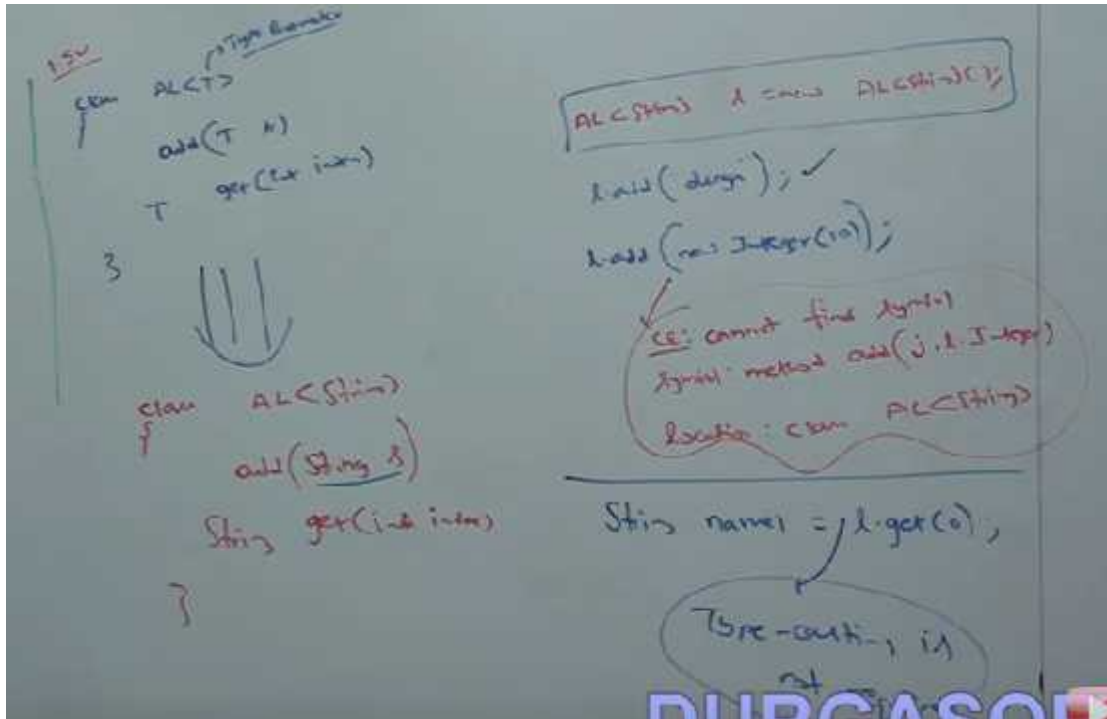 1.5V
class AL<T>
→ Type Parameter
{
add(T t)
T get(int index)
}
class AL<String>
{
add(String s)
String get(int index)
}
AL<String> l = new AL<String>();
l.add("durga"); ✓
l.add(new Integer(10));
CE: cannot find symbol
symbol: method add(j.l.Integer)
location: class AL<String>
String name1 = l.get(0);
Type-casting is
not
DURGASO